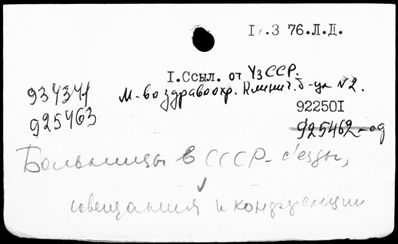 76.Л.Д.
I.Ссыл. от УзССР.
934374 М-во здравоохр. Клинич. б-ца №2.
925463 922501
925462-од
Больницы в СССР - съезды,
совещания и конференции